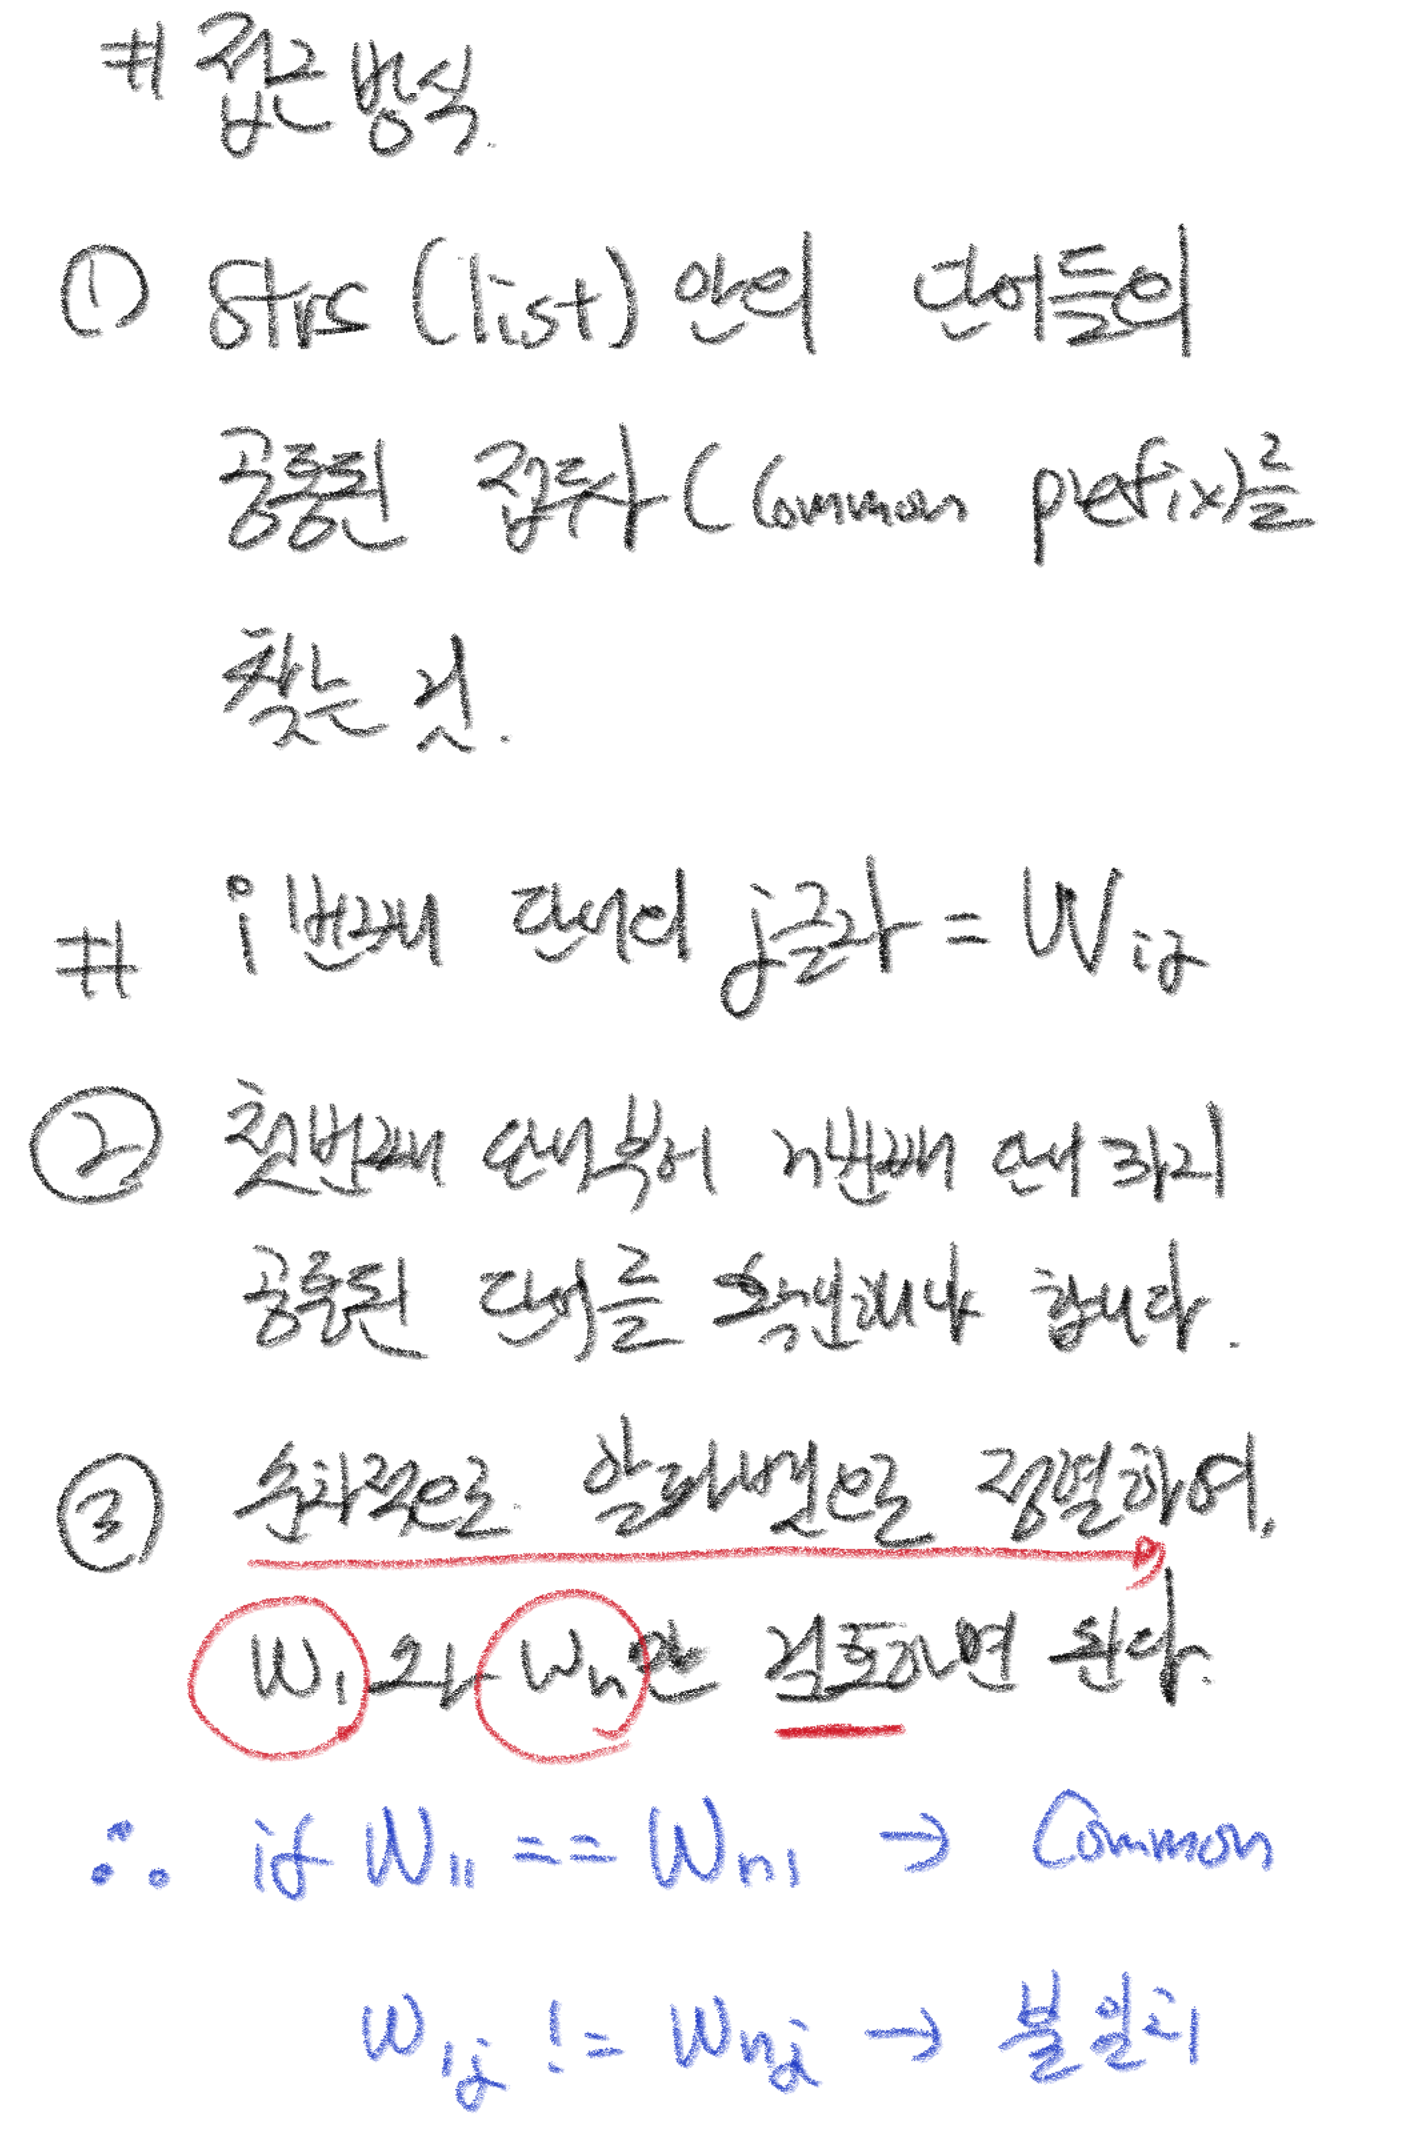 # 접근 방식.
① strs (list) 안의 단어들의
공통된 접두사 (Common prefix)를
찾는 것.
# i 번째 단어의 j글자 = W ij
② 첫번째 단어부터 n번째 단어까지
공통된 단어를 확인해야 합니다.
③ 순차적으로 알파벳으로 정렬하여,
W1 와 Wn만 검토하면 된다.
∴ if W11 == Wn1 → Common
W1j != Wnj → 불일치